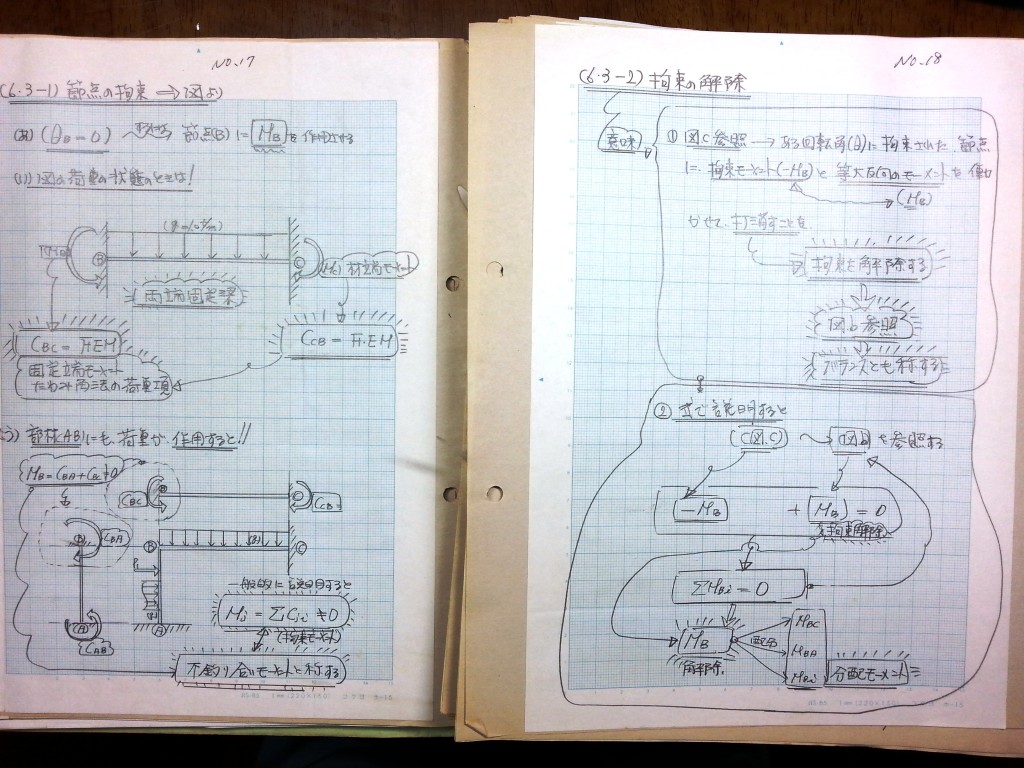 NO.17
(6・3-1) 節点の拘束 → 図より
(あ) (θB=0) 節点(B)に MB を作用させる
(い) 図の荷重の状態のときは!
B
C
材端モーメント
両端固定梁
CBC = F.EM
CCB = F.EM
固定端モーメント
たわみ角法の荷重項
(う) 部材(AB)にも荷重が作用すると!!
MB = CBA + CBC ≠ 0
CBC
CCB =
B
CBA
B
C
A
CAB
A
一般的に説明すると
Mi = ΣCij ≠ 0
(拘束モーメント)
不釣り合いモーメントと称する
NO.18
(6・3-2) 拘束の解除
意味
① 図C参照 → ある回転角(θ)に拘束された節点
に拘束モーメント(-MB)と等大反向のモーメントを働
(MB)
かせて、打消すことを
拘束を解除する
図b参照
バランスとも称する
② 式で説明すると
(図.C) 図b を参照する
-MB + MB) = 0
拘束解除
ΣMBi = 0
MB
解除
配分
MBC
MBA
MBj
分配モーメント